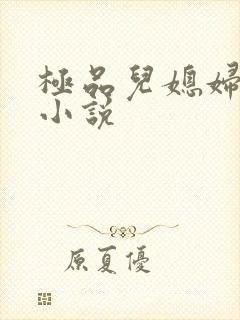 極品兒媳婦
小說
原夏優